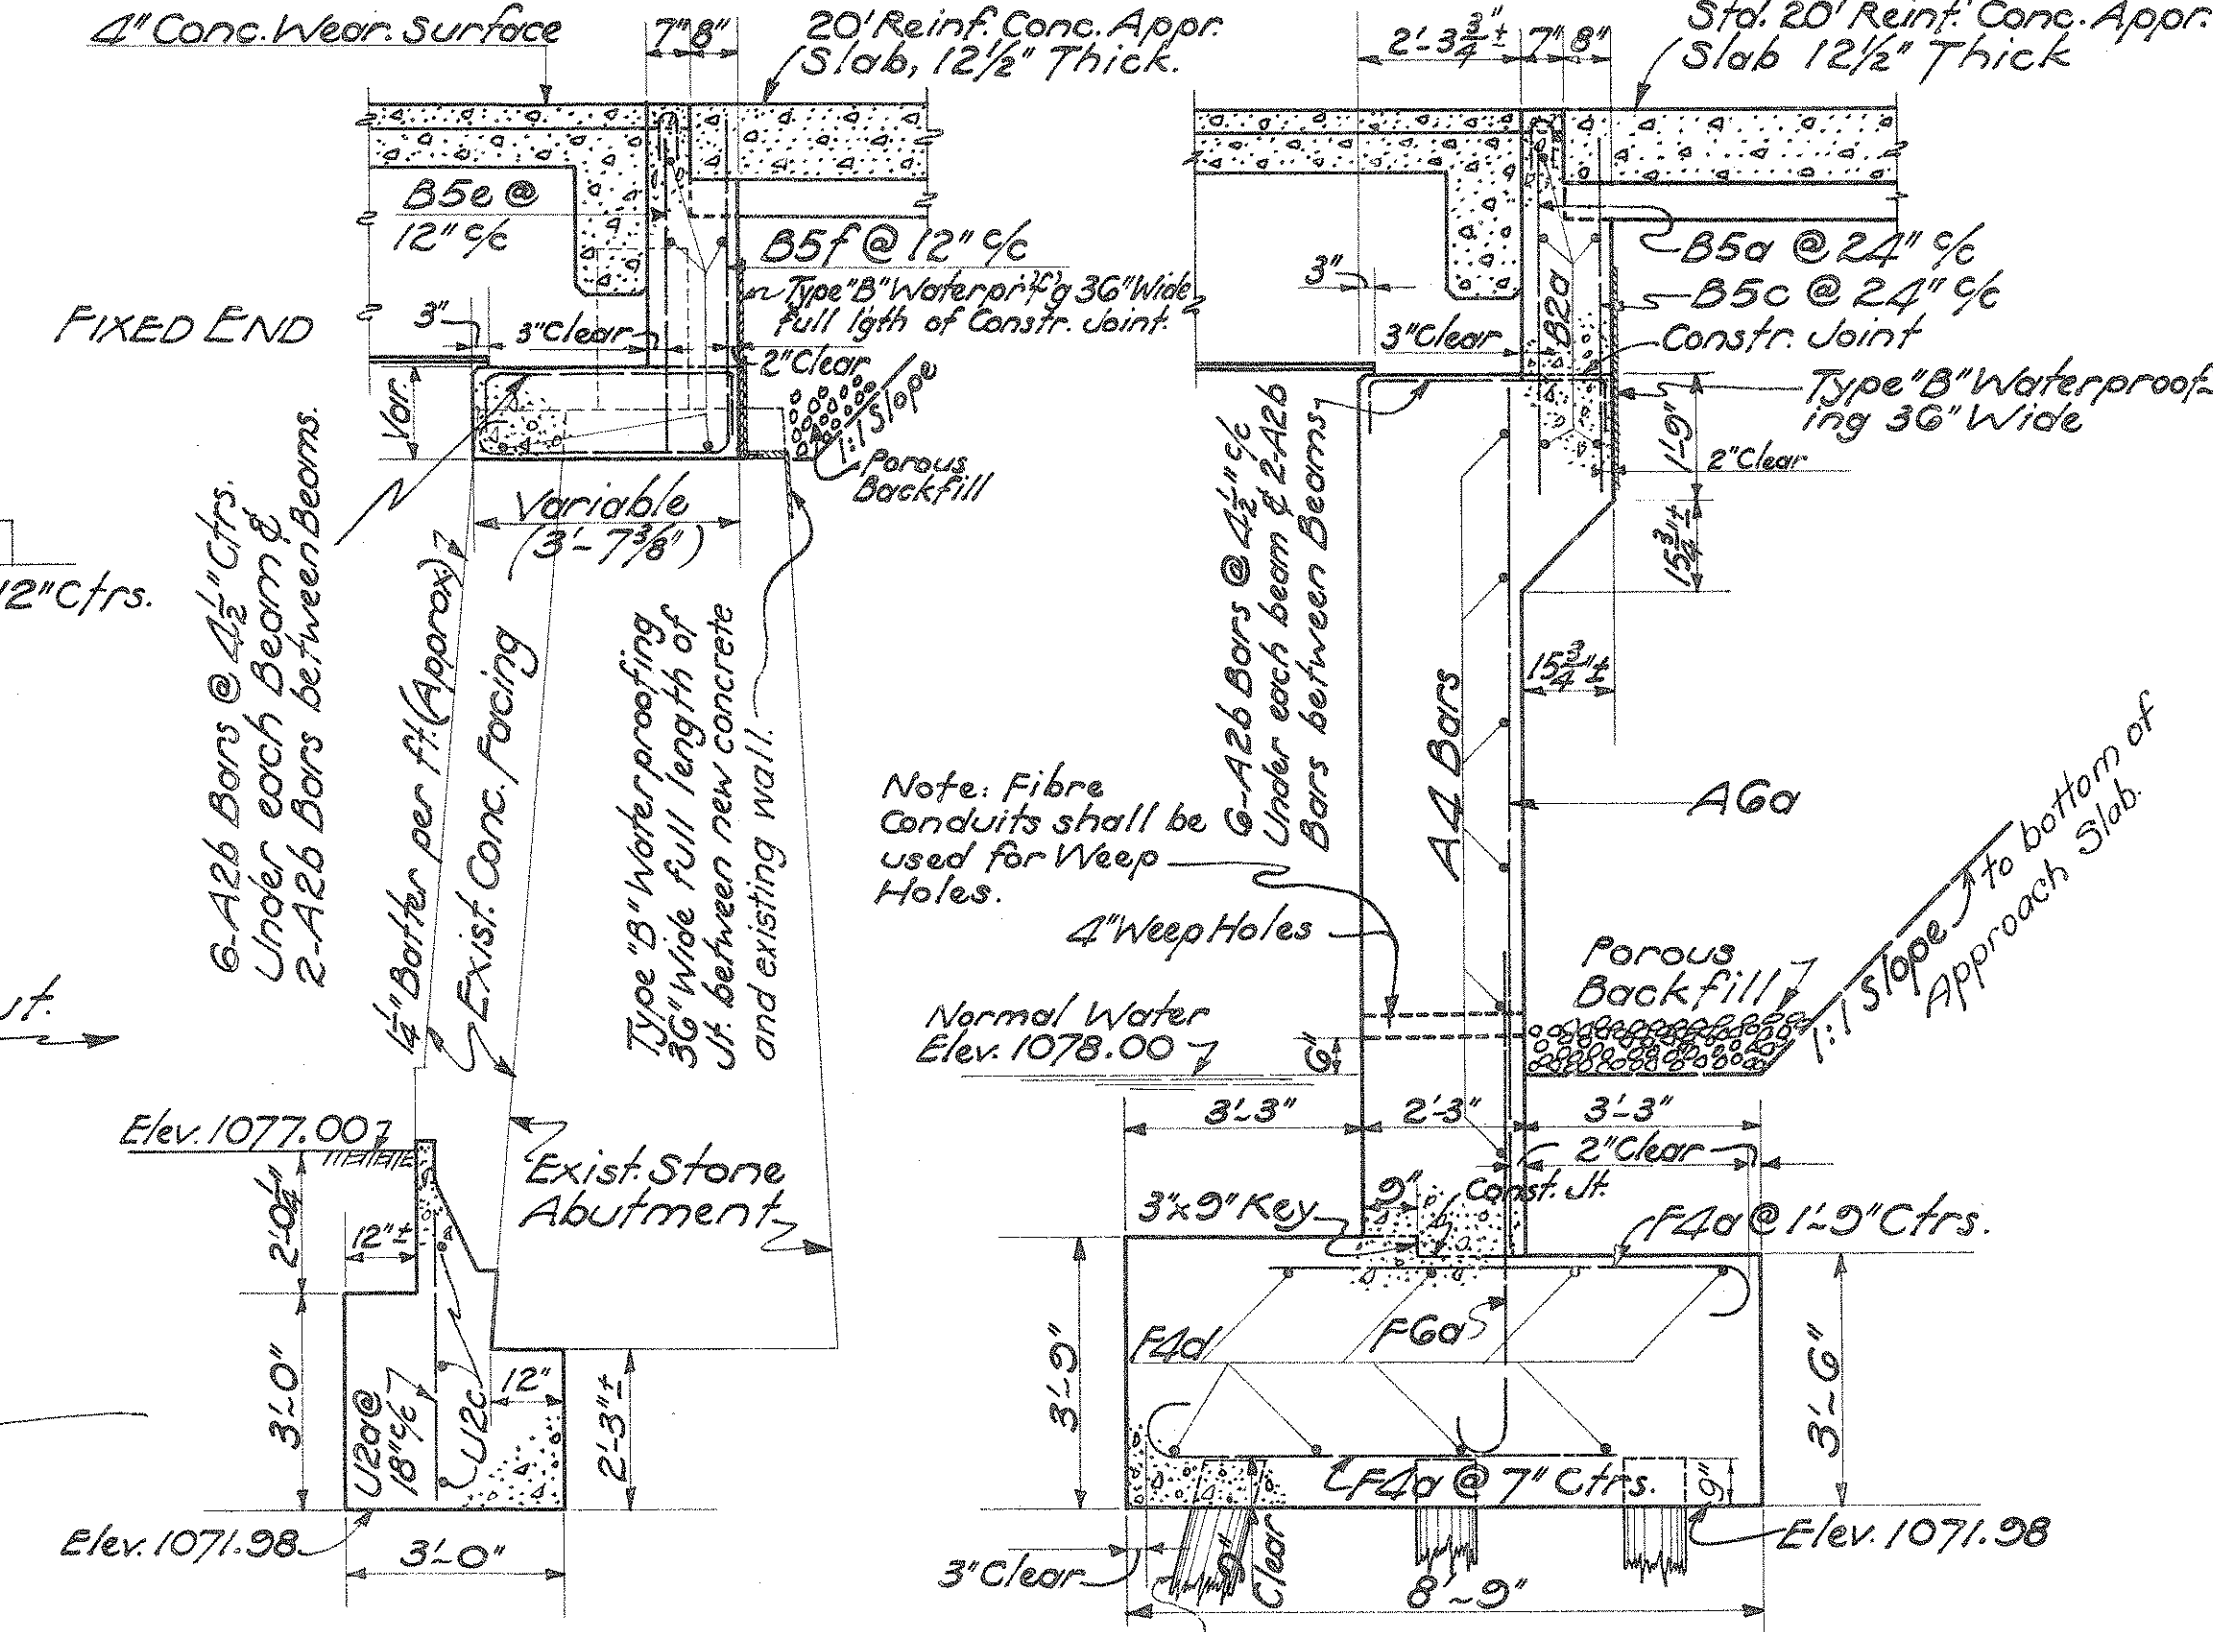 4" Conc. Wear. Surface
7" 8"
20' Reinf. Conc. Appr.
Slab, 12½" Thick.
B5e @
12" c/c
B5f @ 12" c/c
Type "B" Waterpr'f'g 36" Wide
full l'gth of Constr. Joint.
FIXED END
3"
3" Clear
2" Clear
Var.
1:1 Slope
Porous
Backfill
Variable
(3'-7⅜")
12" Ctrs.
6-A2b Bars @ 4½" Ctrs.
Under each Beam &
2-A2b Bars between Beams.
1¼" Batter per ft. (Approx.)
Exist. Conc. Facing
Type "B" Waterproofing
36" Wide full length of
Jt. between new concrete
and existing wall.
Elev. 1077.00
Exist. Stone
Abutment
2'-0¼"
12"±
3'-0"
U2a @
18" c/c
U2c
12"
2'-3"±
Elev. 1071.98
3'-0"
2'-3¾"±
7" 8"
Std. 20' Reinf. Conc. Appr.
Slab 12½" Thick
B5a @ 24" c/c
B5c @ 24" c/c
B2a
3"
3" Clear
Constr. Joint
Type "B" Waterproof-
ing 36" Wide
1'-9"
2" Clear
15¾"±
15¾"±
6-A2b Bars @ 4½" c/c
Under each beam & 2-A2b
Bars between Beams
A4 Bars
A6a
Note: Fibre
Conduits shall be
used for Weep
Holes.
4" Weep Holes
Normal Water
Elev. 1078.00
6"
Porous
Backfill
1:1 Slope to bottom of
Approach Slab.
3'-3"
2'-3"
3'-3"
2" Clear
9"
Const. Jt.
3"x9" Key
F4a @ 1'-9" Ctrs.
F4d
F6a
3'-9"
3'-6"
F4a @ 7" Ctrs.
9"
3" Clear
9"
Clear
Elev. 1071.98
8'-9"